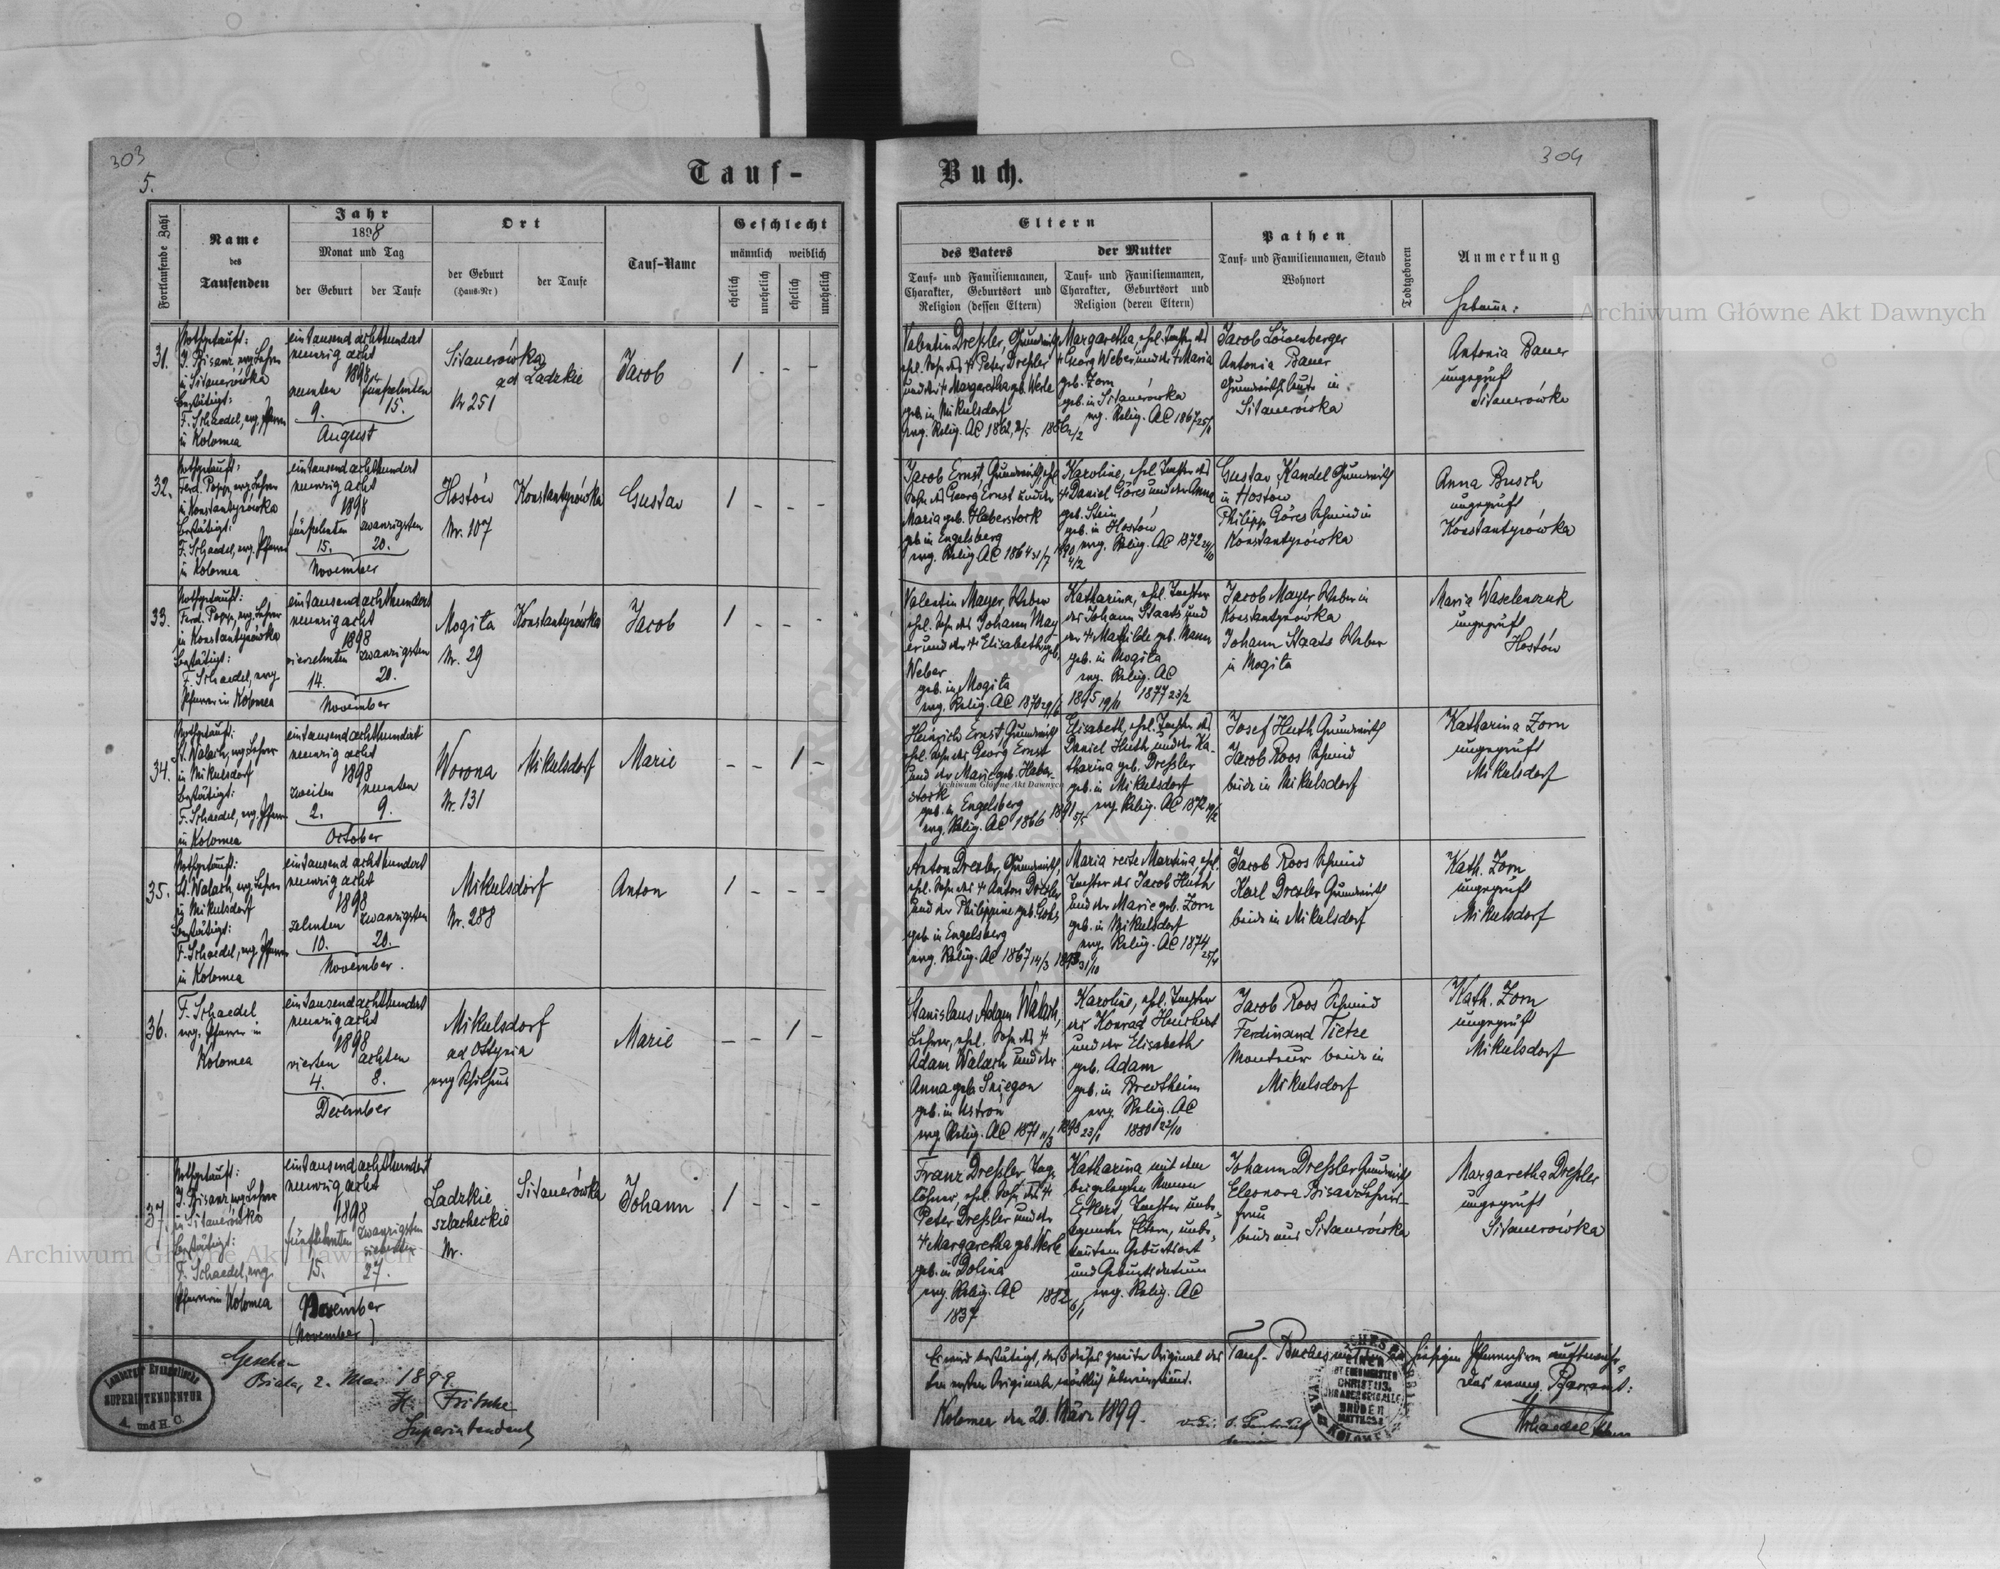 303
5.
Tauf-
Fortlaufende Zahl
Name
des
Taufenden
Jahr
1898
Monat und Tag
der Geburt
der Taufe
Ort
der Geburt
(Haus-Nr)
der Taufe
Tauf-Name
Geschlecht
männlich
weiblich
ehelich
unehelich
ehelich
unehelich
31.
Nothgetauft:
J. Bisanz, evg. Lehrer
in Sitauerówka
bestätigt:
F. Schaedel, evg. Pfarrer
in Kolomea
eintausend achthundert
neunzig acht
1898
neunten
fünfzehnten
9.
15.
August
Sitauerówka
ad Ladzkie
Nr 251
Jacob
1 - - -
32.
Nothgetauft:
Ferd. Popp, evg. Lehrer
in Konstantyrówka
bestätigt:
F. Schaedel, evg. Pfarrer
in Kolomea
eintausend achthundert
neunzig acht
1898
fünfzehnten
zwanzigsten
15.
20.
November
Hostów
Nr. 107
Konstantyrówka
Gustav
1 - - -
33.
Nothgetauft:
Ferd. Popp, evg. Lehrer
in Konstantyrówka
bestätigt:
F. Schaedel, evg.
Pfarrer in Kolomea
eintausend achthundert
neunzig acht
1898
vierzehnten
zwanzigsten
14.
20.
November
Mogila
Nr. 29
Konstantyrówka
Jacob
1 - - -
34.
Nothgetauft:
St. Walach, evg. Lehrer
in Mikulsdorf
bestätigt:
F. Schaedel, evg. Pfarrer
in Kolomea
eintausend achthundert
neunzig acht
1898
zweiten
neunten
2.
9.
October
Worona
Nr. 131
Mikulsdorf
Marie
- - 1 -
35.
Nothgetauft:
St. Walach, evg. Lehrer
in Mikulsdorf
bestätigt:
F. Schaedel, evg. Pfarrer
in Kolomea
eintausend achthundert
neunzig acht
1898
zehnten
zwanzigsten
10.
20.
November.
Mikulsdorf
Nr. 288
Anton
1 - - -
36.
F. Schaedel
evg. Pfarrer in
Kolomea
eintausend achthundert
neunzig acht
1898
vierten
achten
4.
8.
December
Mikulsdorf
ad Ottynia
evg Schulhaus
Marie
- - 1 -
37.
Nothgetauft:
J. Bisanz evg. Lehrer
in Sitauerówka
bestätigt:
F. Schaedel, evg.
Pfarrer in Kolomea
eintausend achthundert
neunzig acht
1898
fünfzehnten
zwanzigsten
siebenten
15.
27.
November
(November)
Ladzkie
szlacheckie
Nr.
Sitauerówka
Johann
1 - - -
Gesehen
Biala, 2. Mai 1899
H. Fritsche
Superintendent
Lemberger Evangelische
SUPERINTENDENTUR
A. und H. C.
304
Buch.
Eltern
des Vaters
Tauf- und Familiennamen,
Charakter, Geburtsort und
Religion (dessen Eltern)
der Mutter
Tauf- und Familiennamen,
Charakter, Geburtsort und
Religion (deren Eltern)
Pathen
Tauf- und Familiennamen, Stand
Wohnort
Todtgeboren
Anmerkung
Hebamme:
Valentin Dreßler, Grundwirth
ehl. Sohn des † Peter Dreßler
und der † Margaretha geb. Werle
geb. in Mikulsdorf
evg. Relig. AC 1862, 2/5
Margaretha, ehl. Tochter des
† Georg Weber und der † Maria
geb. Zorn
geb. in Sitauerówka
evg. Relig. AC 1867
Jacob Löwenberger
Antonia Bauer
Grundwirthsleute in
Sitauerówka
Antonia Bauer
ungeprüft
Sitauerówka
Jacob Ernst, Grundwirth, ehl.
Sohn des Georg Ernst und der
Maria geb. Haberstock
geb. in Engelsberg
evg. Relig. AC 1864 31/7
Karoline, ehl. Tochter des
† Daniel Göres und der Anna
geb. Stein
geb. in Hostów
evg. Relig. AC 1872
Gustav Kandel Grundwirth
in Hostow
Philipp Göres Schmied in
Konstantyrówka
Anna Busch
ungeprüft
Konstantyrówka
Valentin Mayer, Weber
ehl. Sohn des Johann May-
er und der † Elisabeth geb.
Weber
geb. in Mogila
evg. Relig. AC 1870
Katharina, ehl. Tochter
des Johann Staats und
der † Mathilde geb. Mann
geb. in Mogila
evg. Relig. AC
1895 19/11 1877 23/2
Jacob Mayer Weber in
Konstantyrówka
Johann Staats Weber
in Mogila
Maria Waselenczuk
ungeprüft
Hostów
Heinrich Ernst, Grundwirth
ehl. Sohn des Georg Ernst
und der Marie geb. Haber-
stock
geb. in Engelsberg
evg. Relig. AC 1866
Elisabeth, ehl. Tochter des
Daniel Huth und der Ka-
tharina geb. Dressler
geb. in Mikulsdorf
evg. Relig. AC 1872
Josef Huth Grundwirth
Jacob Roos Schmied
beide in Mikulsdorf
Katharina Zorn
ungeprüft
Mikulsdorf
Anton Drexler, Grundwirth,
ehl. Sohn des † Anton Drexler
und der Philippine geb.
geb. in Engelsberg
evg. Relig. AC 1867 14/3
Maria recte Martina, ehl.
Tochter des Jacob Huth
und der Marie geb. Zorn
geb. in Mikulsdorf
evg. Relig. AC 1874
Jacob Roos Schmied
Karl Drexler Grundwirth
beide in Mikulsdorf
Kath. Zorn
ungeprüft
Mikulsdorf
Stanislaus Adam Walach,
Lehrer, ehl. Sohn des †
Adam Walach und der
Anna geb. Sniegon
geb. in Ustroń
evg. Relig. AC 1871 11/3
Karoline, ehl. Tochter
des Konrad Heuchert
und der Elisabeth
geb. Adam
geb. in Bredtheim
evg. Relig. AC
1898 23/1 1880 22/10
Jacob Roos Schmied
Ferdinand Tietze
Monteur beide in
Mikulsdorf
Kath. Zorn
ungeprüft
Mikulsdorf
Franz Dreßler Tag-
löhner, ehl. Sohn des †
Peter Dreßler und der
† Margaretha geb. Werle
geb. in Dolina
evg. Relig. AC
1837
1882 6/1
Katharina mit dem
beigelegten Namen
Eckert, Tochter unbe-
kannter Eltern, unbe-
kanntem Geburtsort
und Geburtsdatum
evg. Relig. AC
Johann Dreßler Grundwirth
Eleonora Bisanz Lehrers-
frau
beide aus Sitauerówka
Margaretha Dreßler
ungeprüft
Sitauerówka
Es wird bestätigt, daß dieses zweite Original des Tauf-Buches mit dem im hiesigen Pfarrarchive aufbewahr-
ten ersten Originale wörtlich übereinstimmt.
Das evang. Pfarramt:
Kolomea den 20. März 1899.
Schaedel
Archiwum Główne Akt Dawnych
Archiwum Główne Akt Dawnych
Archiwum Główne Akt Dawnych